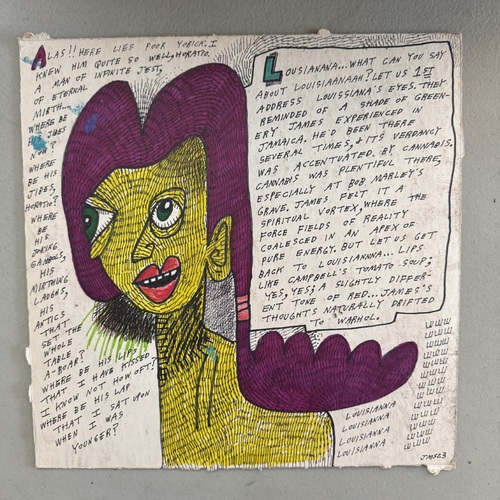 ALAS!! HERE LIES POOR YORICK. I
KNEW HIM QUITE SO WELL, HORATIO.
A MAN OF INFINITE JEST,
OF ETERNAL
MIRTH...
WHERE BE
HIS JOKES
NOW?
WHERE
BE HIS
JIBES,
HORATIO?
WHERE
BE
HIS
JOKING
GAMBOLS,
HIS
MIRTHING
LAUGHS,
HIS
ANTICS
THAT
SET THE
WHOLE
TABLE
A-ROAR?
WHERE BE HIS LIPS
THAT I HAVE KISSED
I KNOW NOT HOW OFT?
WHERE BE HIS LAP
THAT I SAT UPON
WHEN I WAS
YOUNGER?
LOUSIANANA... WHAT CAN YOU SAY
ABOUT LOUISIAANAAH? LET US 1ST
ADDRESS LOUISSIANA'S EYES. THEY
REMINDED OF A SHADE OF GREEN-
ERY JAMES EXPERIENCED IN
JAMAICA. HE'D BEEN THERE
SEVERAL TIMES, & ITS VERDANCY
WAS ACCENTUATED. BY CANNABIS.
CANNABIS WAS PLENTIFUL THERE,
ESPECIALLY AT BOB MARLEY'S
GRAVE. JAMES FELT IT A
SPIRITUAL VORTEX, WHERE THE
FORCE FIELDS OF REALITY
COALESCED IN AN APEX OF
PURE ENERGY. BUT LET US GET
BACK TO LOUISIANNNA... LIPS
LIKE CAMPBELL'S TOMATO SOUP;
YES, YES; A SLIGHTLY DIFFER-
ENT TONE OF RED... JAMES'S
THOUGHTS NATURALLY DRIFTED
TO WARHOL.
LOUISIANNA
LOUISIANNA
LOUISIANNA
LOUISIANNA
JMS23